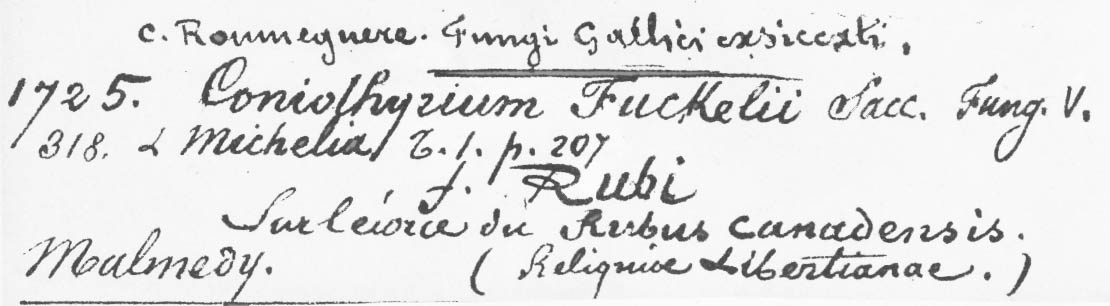 C. Roumeguere. Fungi Gallici exsiccati.
1725. Coniothyrium Fuckelii Sacc. Fung. V.
318. & Michelia T. 1. p. 207
f. Rubi
Sur l'écorce du Rubus canadensis.
Malmedy. (Reliquiae Libertianae.)